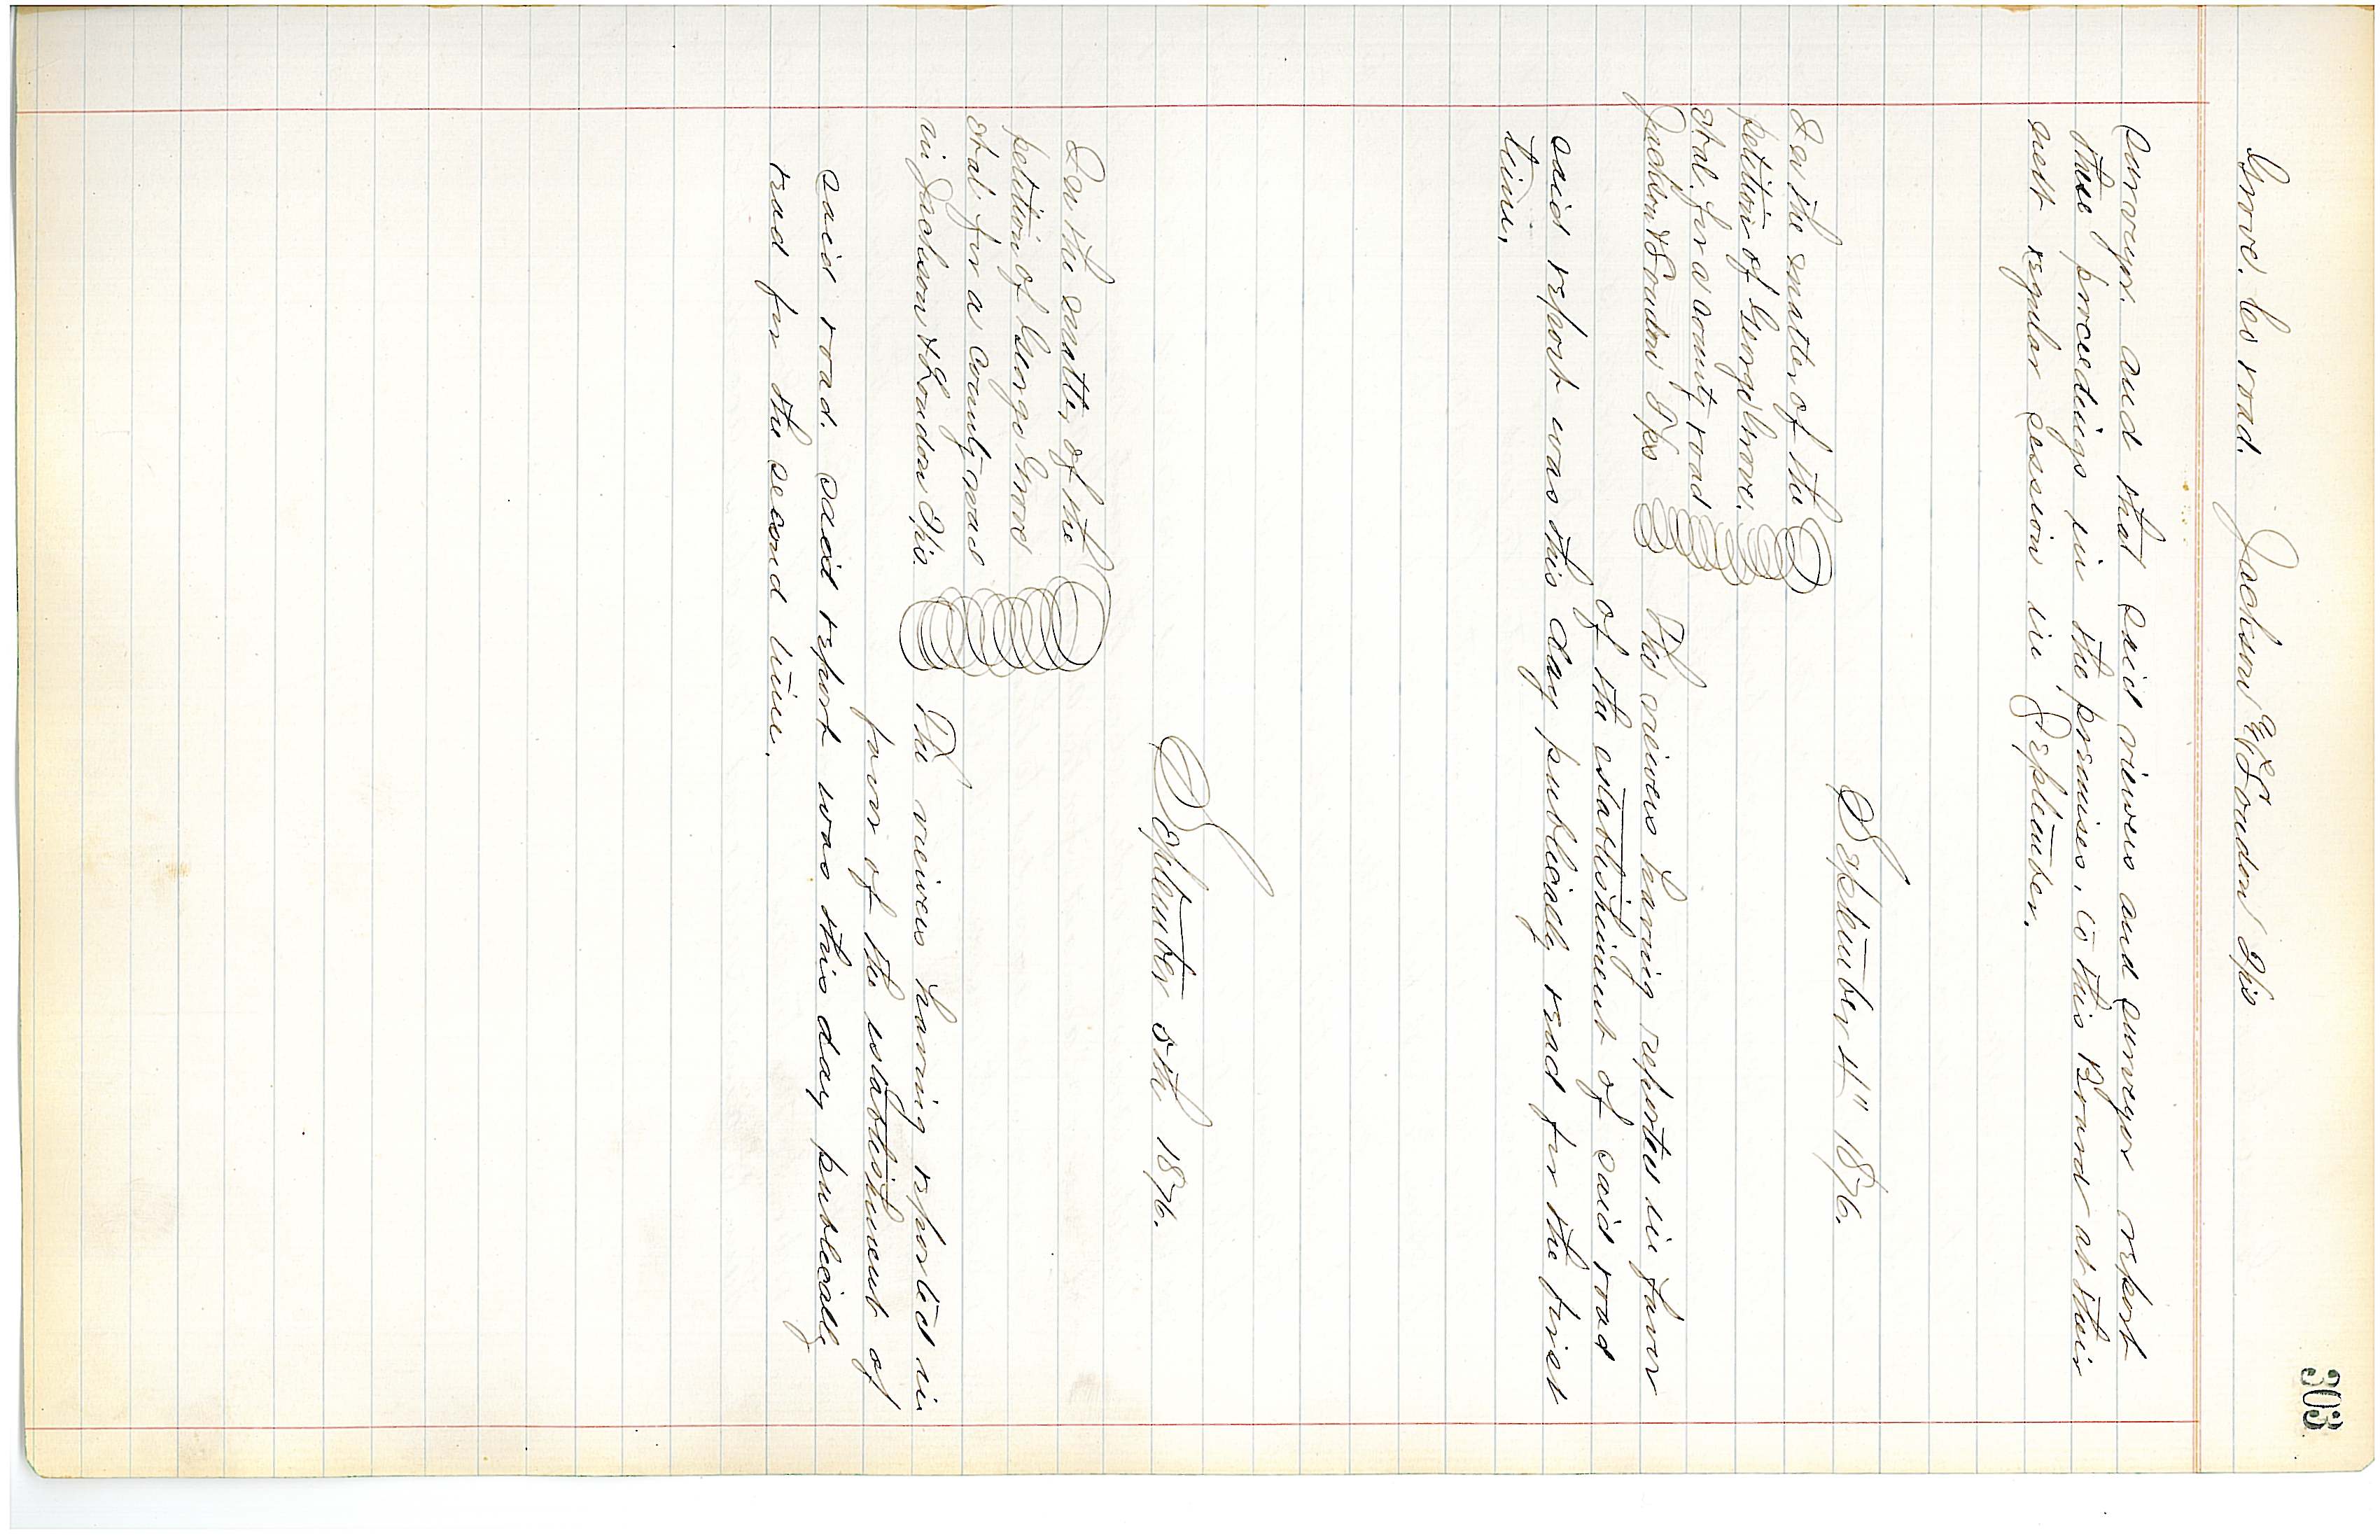 303
Grove. Co road. Jackson & Loudon Tps
Surveyor. and that said viewers and surveyor report
thee procedings in the premises, to this Board at their
next regular session in September.
September 4" 1876.
In the matter of the
petition of George Grove.
et al. for a county road
Jackson & Loudon Tps The viewers having reported in favor
of the establishment of said road
said report was this day publically read for the first
time.
September 5th 1876.
In the matter of the
petition of George Grove
et al. for a county road
in Jackson & Loudon Tps. The viewers having reported in
favor of the establishment of
said road. said report was this day publically
read for the second time.